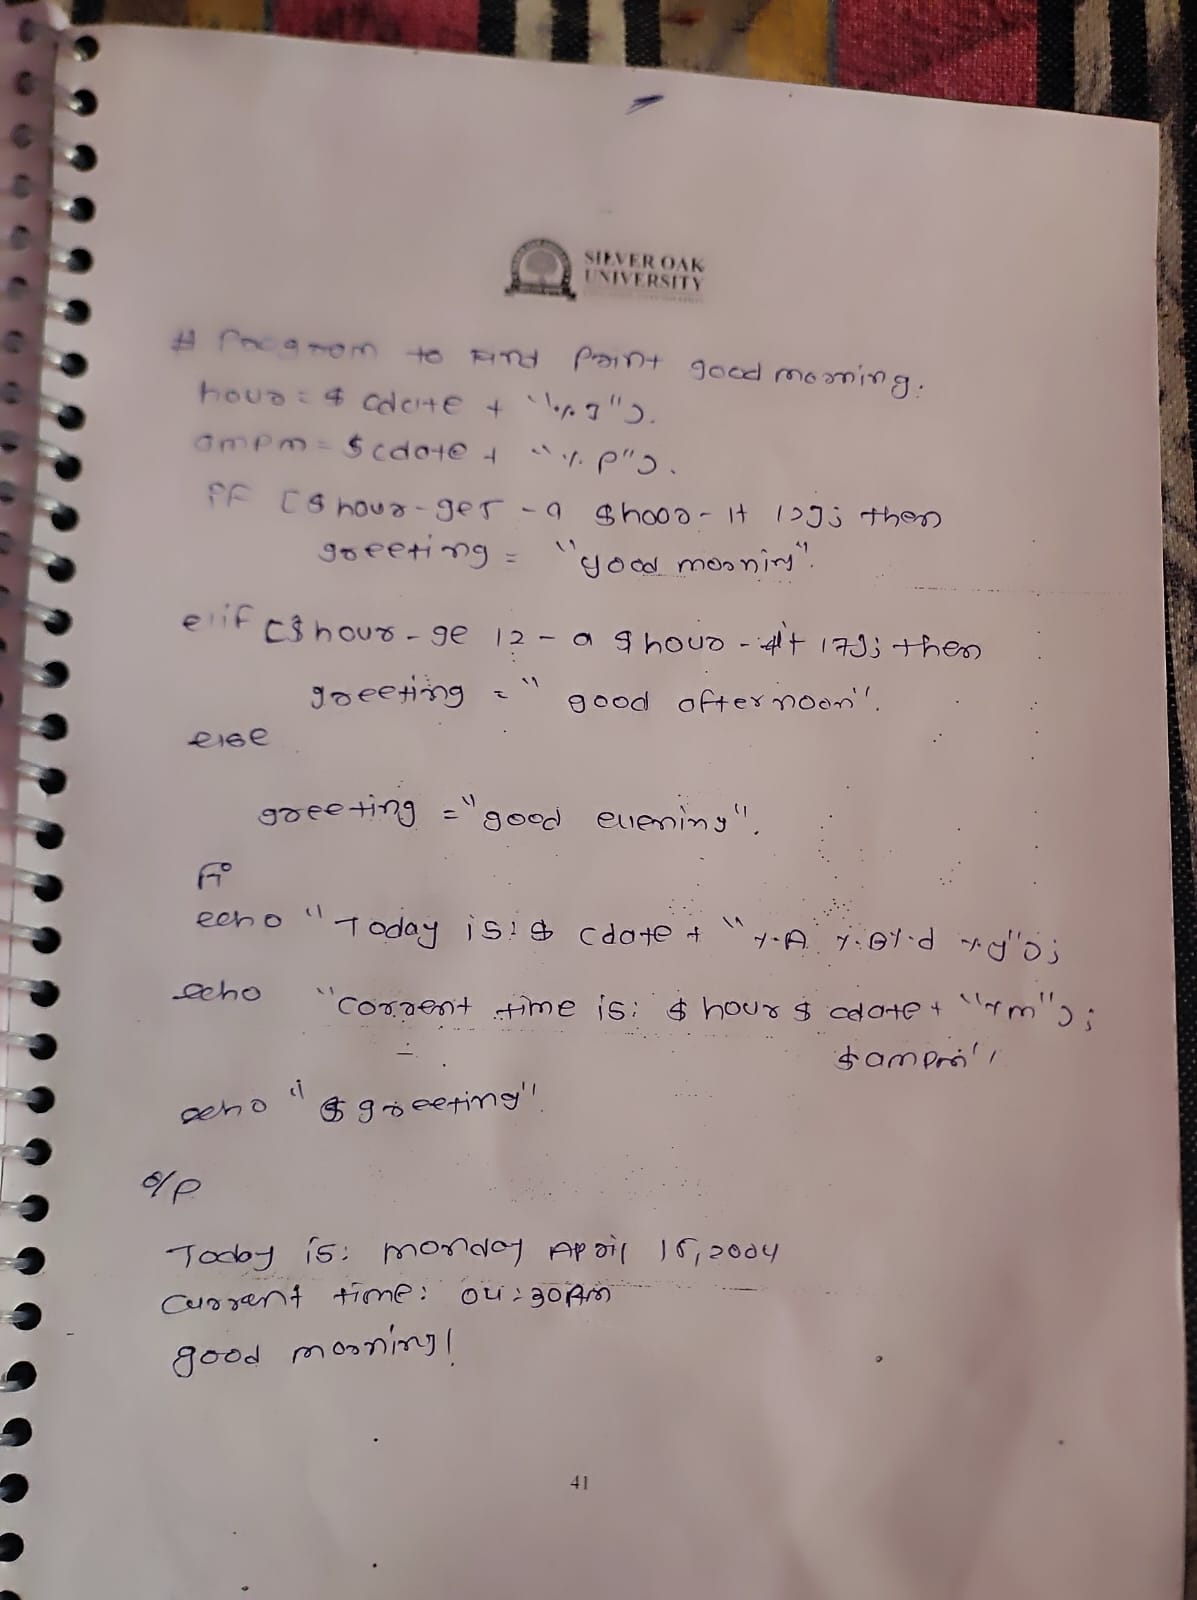 SILVER OAK
UNIVERSITY
# Program to Find Print good morning.
hour = $ cdate + "%I").
ampm = $ cdate + "%P").
if [$ hour - ge 5 - a $hour - lt 12]; then
greeting = "good morning".
elif [$ hour - ge 12 - a $ hour - lt 17]; then
greeting = " good afternoon".
else
greeting = "good evening".
fi
echo "Today is: $ cdate + "%A %B %d %y");
echo "Corrent time is: $ hour $ cdate + "%m");
$ ampm"
echo "$ greeting".
o/p
Today is: monday April 15, 2004
Current time: 04:30 Am
good morning!
41